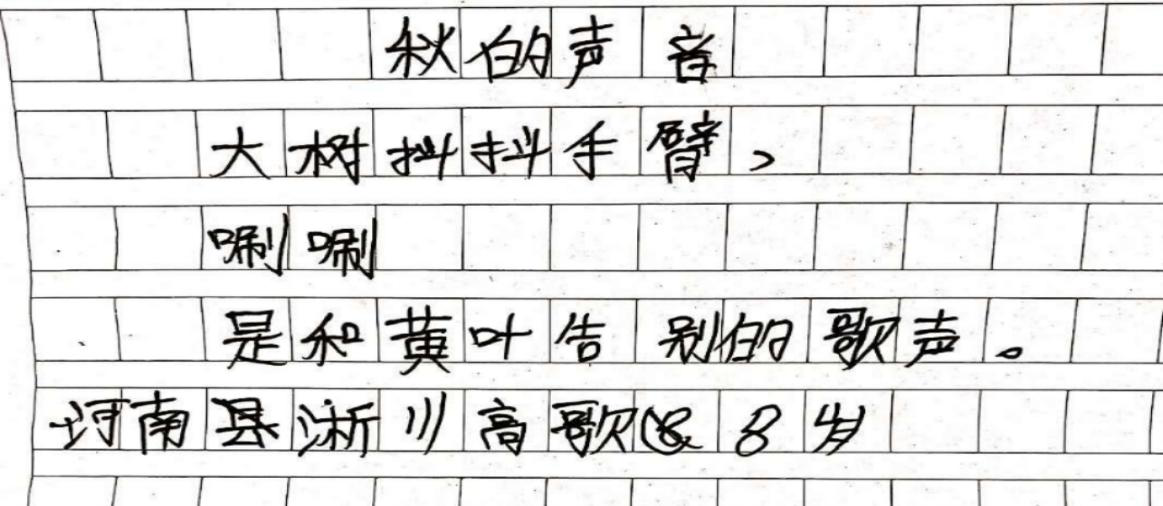 秋的声音
大树抖抖手臂，
唰唰
是和黄叶告别的歌声。
河南县淅川高歌 8岁